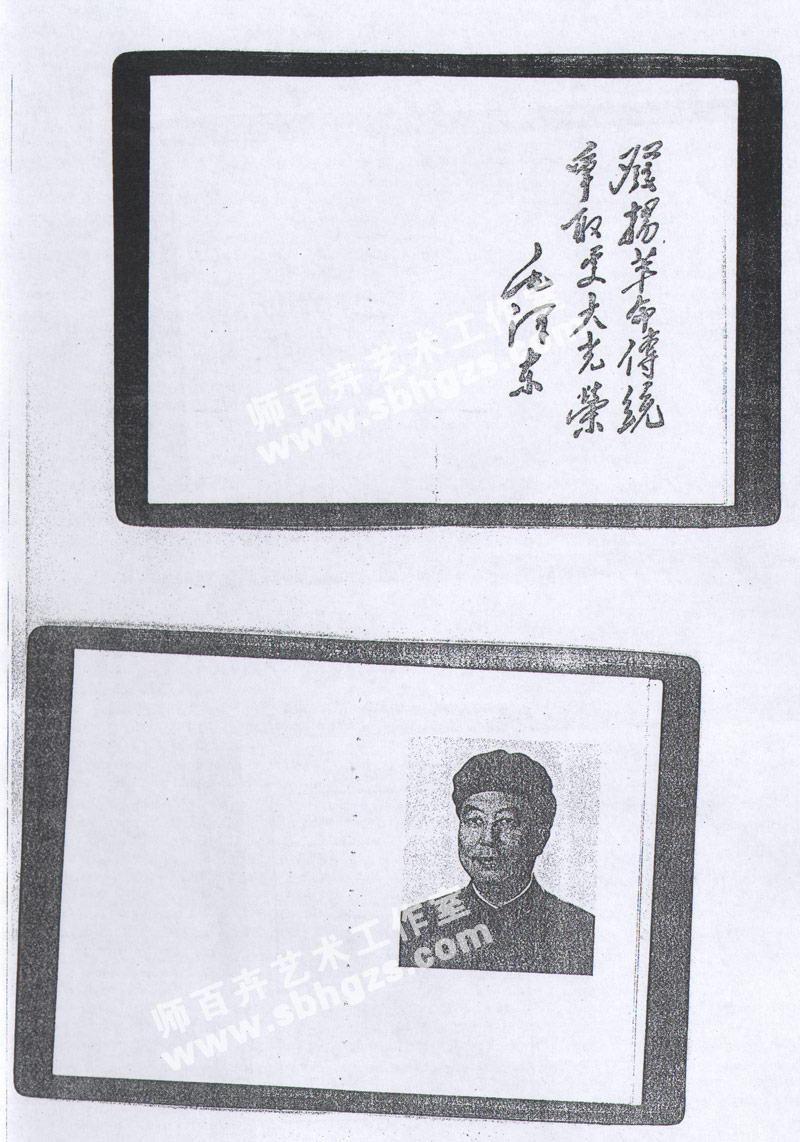 發揚革命傳統
爭取更大光榮
毛澤东
师百卉艺术工作室
www.sbhgzs.com
师百卉艺术工作室
www.sbhgzs.com